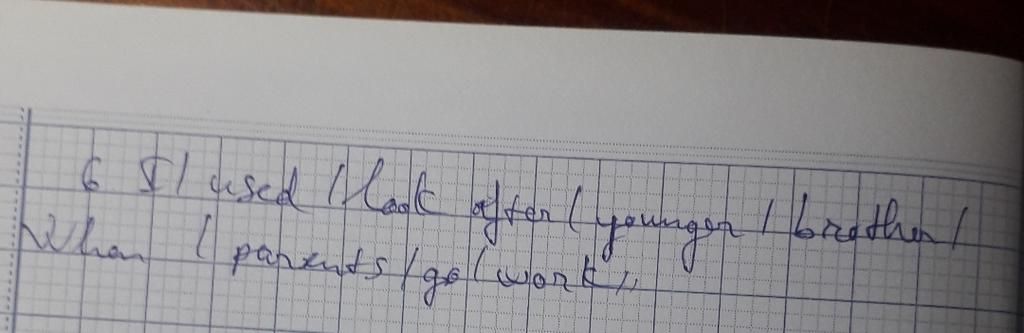 6 I / used / look after / younger / brother /
When / parents / go / work //